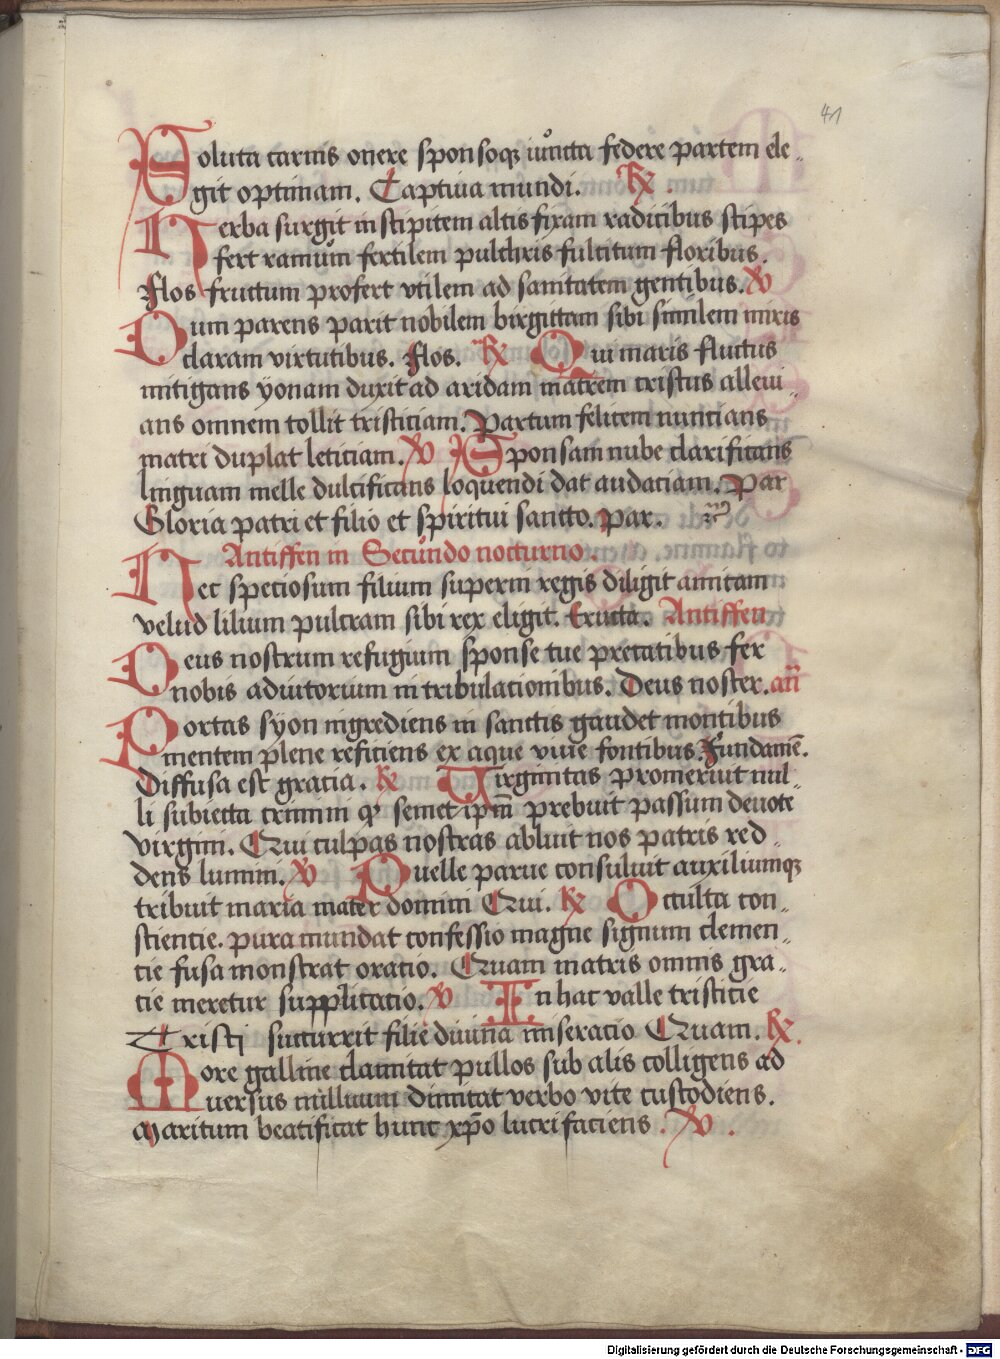 41
Soluta carnis onere sponsoqz iuncta federe partem ele
git optimam. Captiua mundi. R
Herba surgit in stipitem altis fixam radicibus stipes
fert ramum fertilem pulchris fultitum floribus.
Flos fructum profert vtilem ad sanitatem gentibus. V
Dum parens parit nobilem birgittam sibi similem miris
claram virtutibus. Flos. R Qui maris fluctus
mitigans yonam duxit ad aridam matrem tristus alleui
ans omnem tollit tristiciam. Partum felicem nuncians
matri duplat leticiam. V Sponsam nube clarificans
linguam melle dulcificans loquendi dat audaciam. Par
Gloria patri et filio et spiritui sancto. Par.
Antiffen in Secundo nocturno.
Nec speciosum filium superni regis diligit amicam
velud lilium pulcram sibi rex eligit. Eructa. Antiffen
Deus nostrum refugium sponse tue precatibus fer
nobis adiutorium in tribulacionibus. Deus noster. an̄
Portas syon ingrediens in sanctis gaudet montibus
mentem plene reficiens ex aque viue fontibus. Fundamē.
Diffusa est gracia. R Virginitas promeruit nul
li subiecta crimini qz semet ipm̄ prebuit passum deuote
virgini. Qui culpas nostras abluit nos patris red
dens lumini. V Puelle parue consuluit auxiliumqz
tribuit maria mater domini Qui. R Occulta con
sciencie. pura mundat confessio magne signum clemen
cie fusa monstrat oracio. Quam matris omnis gra
cie meretur supplicacio. V In hac valle tristicie
Tristi succurrit filie diuina miseracio Quam. R.
More galline clamitat pullos sub alis colligens ad
uersus miluum dimicat verbo vite custodiens.
Maritum beatificat hunc xp̄o lucrifaciens. V.
Digitalisierung gefördert durch die Deutsche Forschungsgemeinschaft - DFG